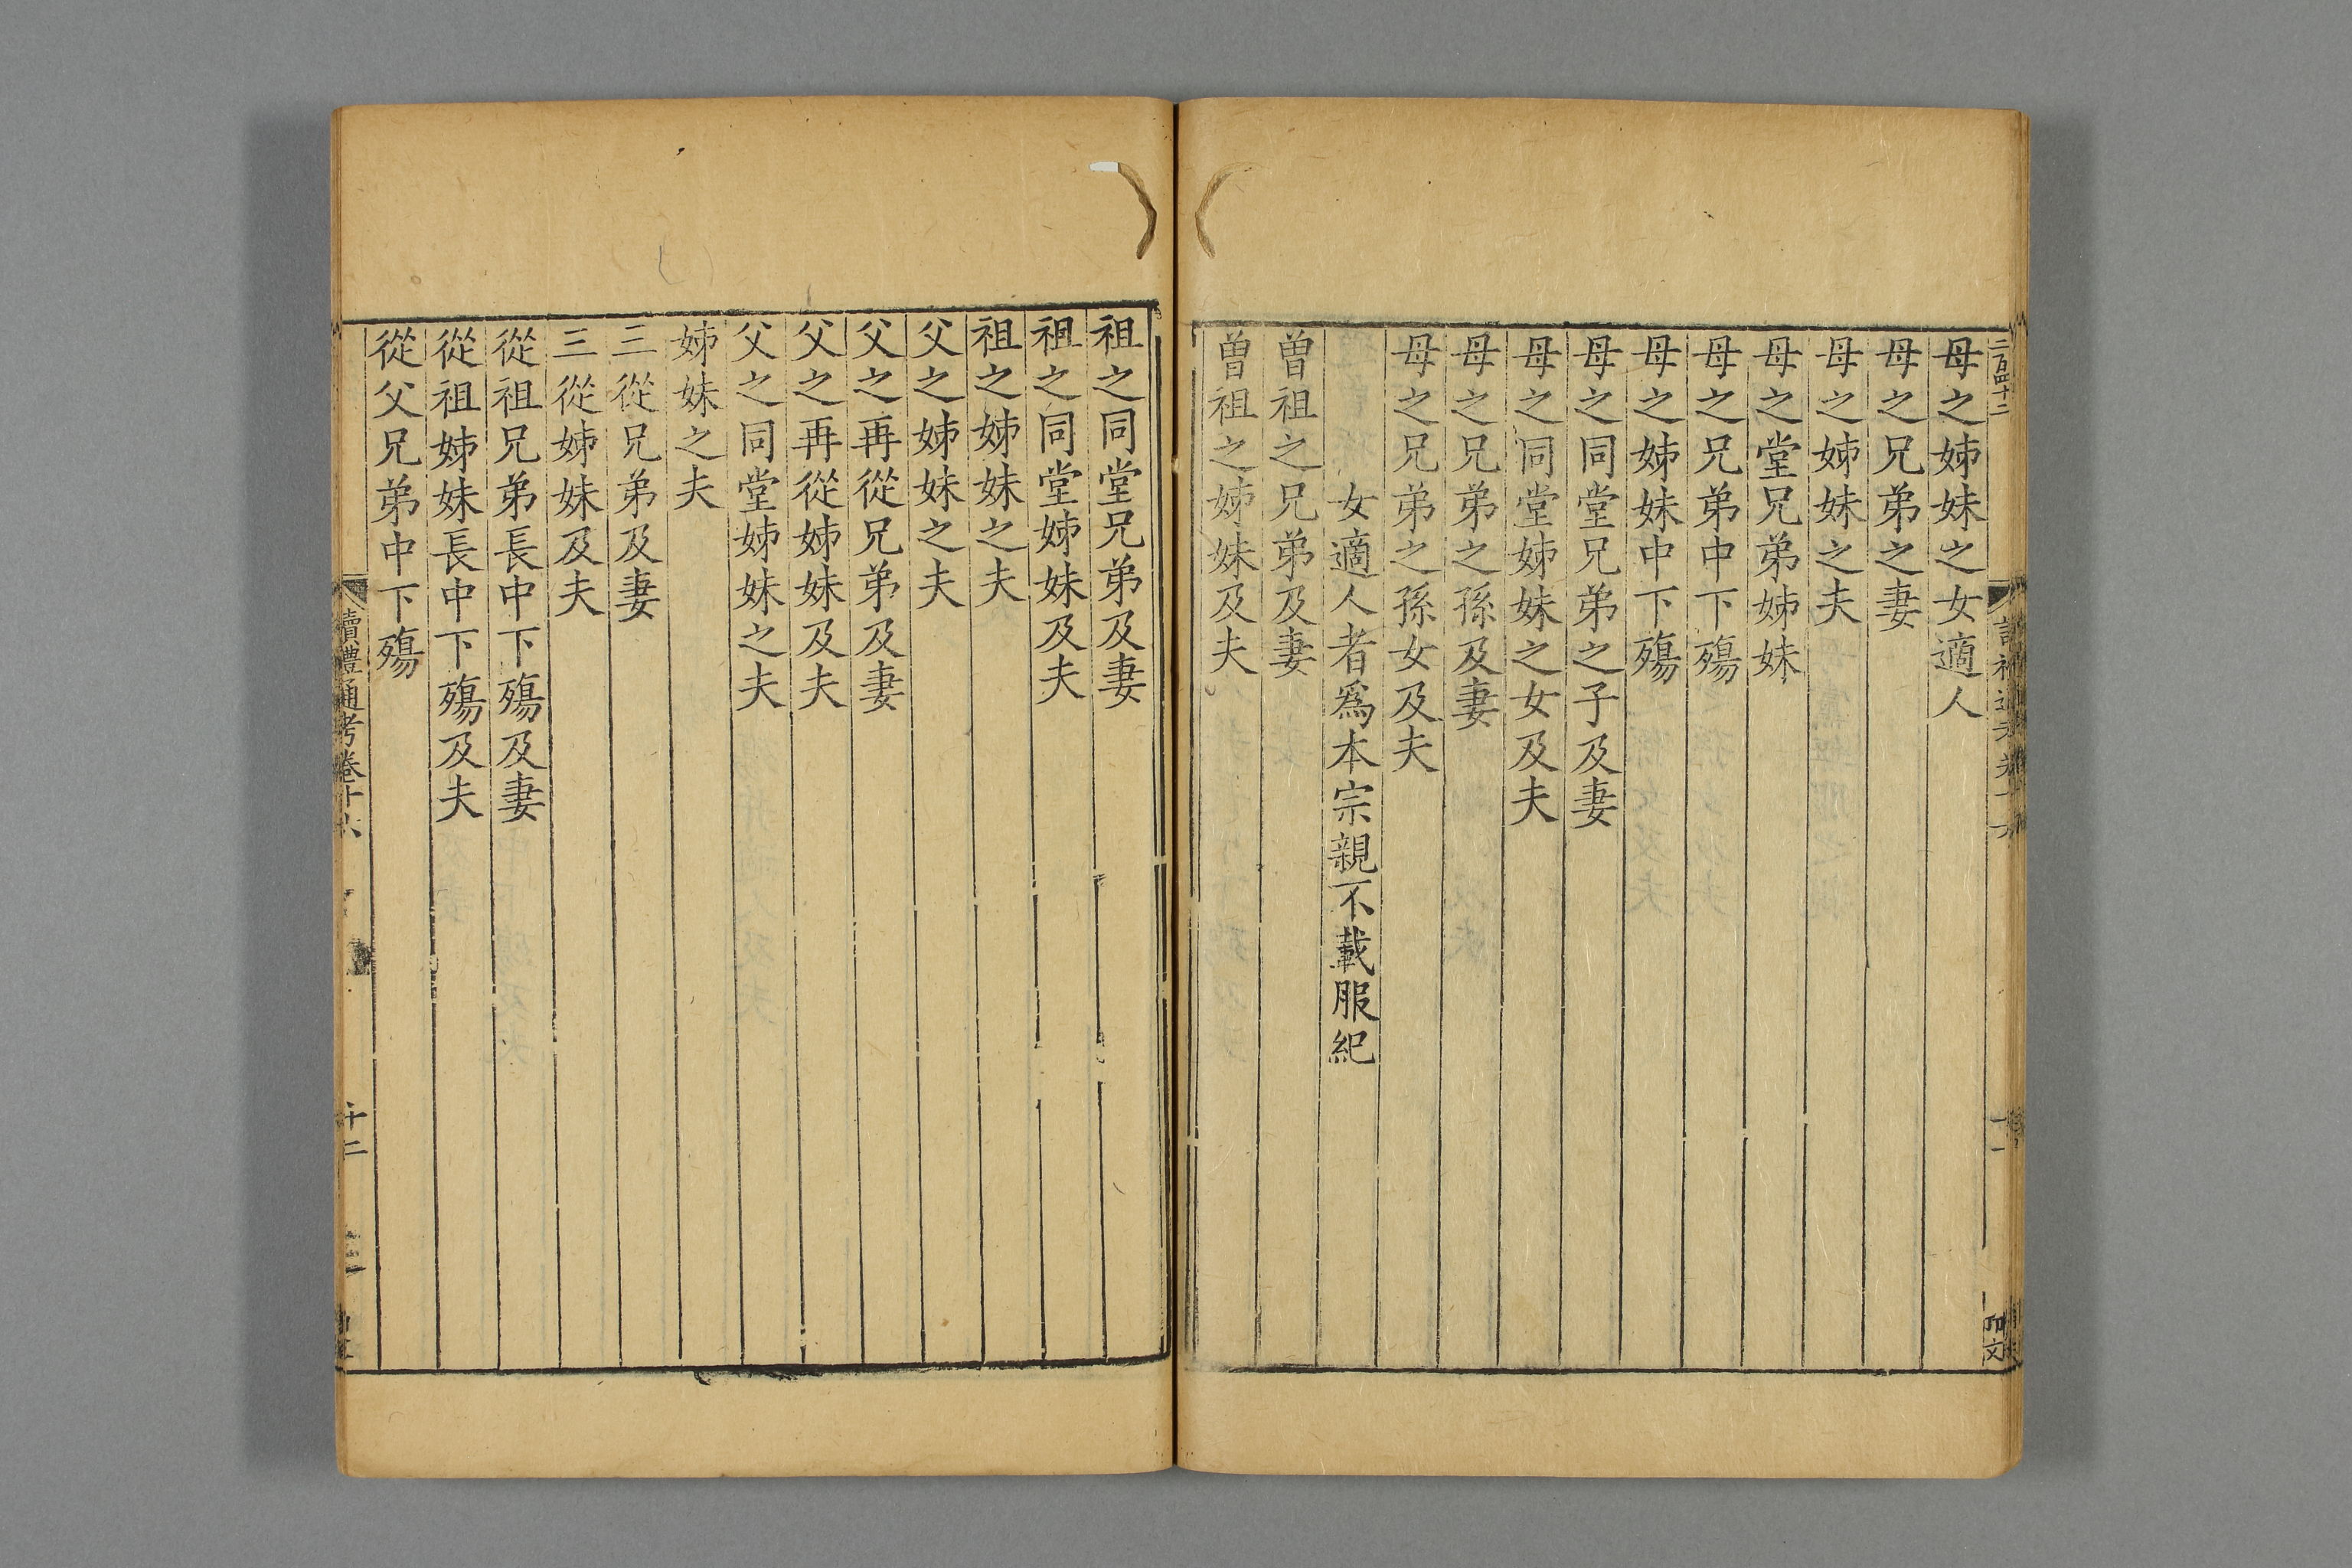 母之姊妹之女適人
母之兄弟之妻
母之姊妹之夫
母之堂兄弟姊妹
母之兄弟中下殤
母之姊妹中下殤
母之同堂兄弟之子及妻
母之同堂姊妹之女及夫
母之兄弟之孫及妻
母之兄弟之孫女及夫
女適人者爲本宗親不載服紀
曾祖之兄弟及妻
曾祖之姊妹及夫
祖之同堂兄弟及妻
祖之同堂姊妹及夫
祖之姊妹之夫
父之姊妹之夫
父之再從兄弟及妻
父之再從姊妹及夫
父之同堂姊妹之夫
姊妹之夫
三從兄弟及妻
三從姊妹及夫
從祖兄弟長中下殤及妻
從祖姊妹長中下殤及夫
從父兄弟中下殤
讀禮通考卷十六
十二